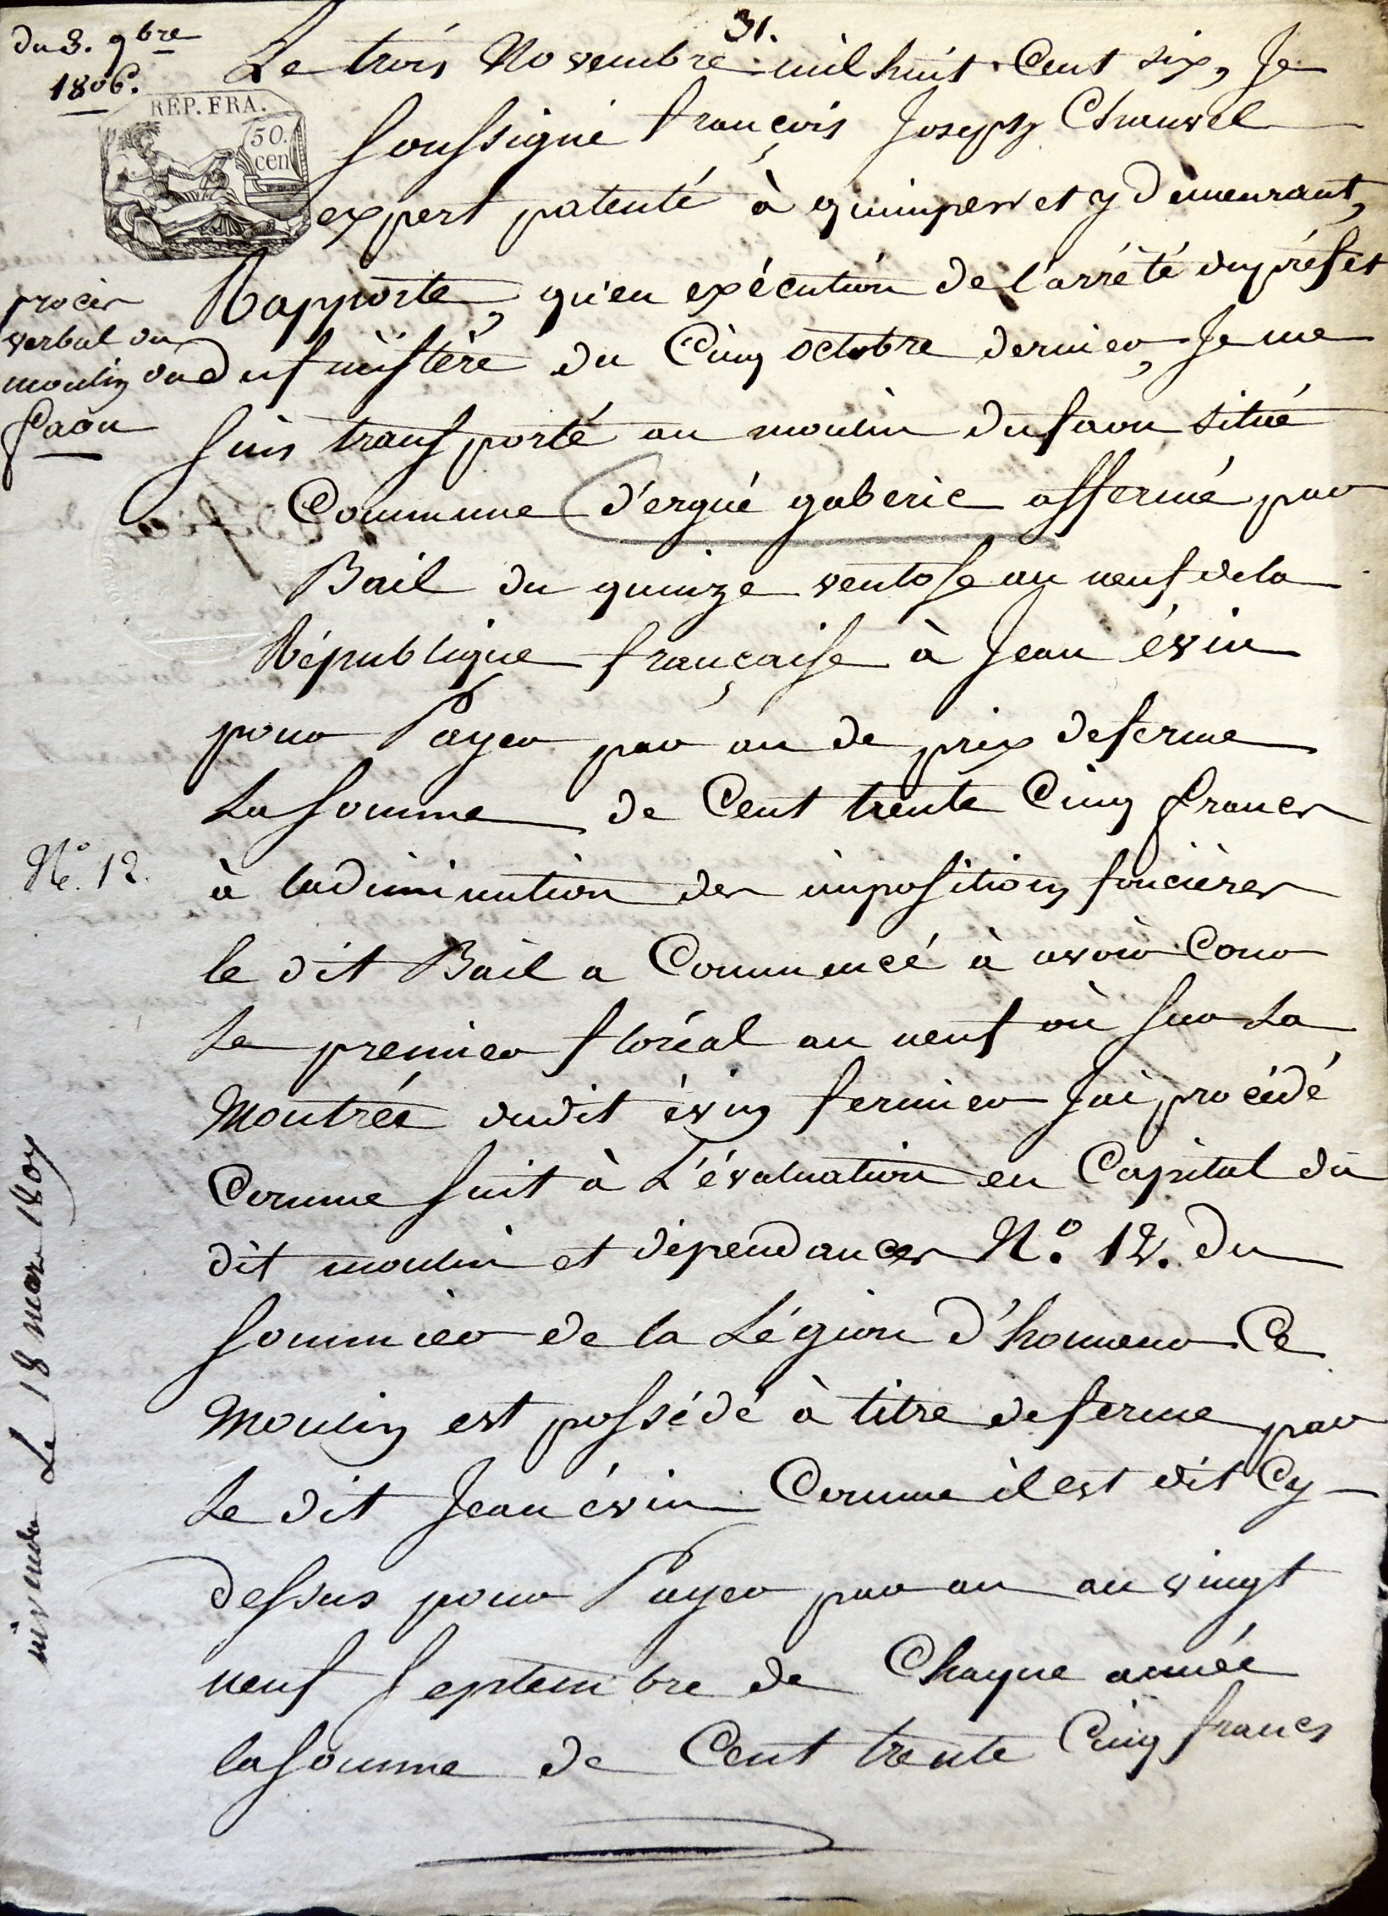 31.
du 3. 9bre
1806.
REP. FRA.
50.
cen
Le trois Novembre mil huit Cent six, Je
soussigné françois Joseph Chauvel
expert patenté à quimper et y demeurant,
Rapporte, qu'en exécution de l'arrêté du préfet
procès
verbal du
moulin du
faou
du finistère du Cinq octobre dernier, Je me
suis transporté au moulin du faou situé
Commune d'ergué gaberic affermé par
Bail du quinze ventose an neuf de la
République française à Jean évin
pour Payer par an de prix de ferme
La somme de Cent trente Cinq francs
No. 12.
à la diminution des impositions foncières
le dit Bail a Commencé à avoir Cour
Le premier floréal an neuf où sur La
Montrée dudit évin fermier J'ai procédé
Comme suit à L'évaluation en Capital du
dit moulin et dépendances No. 12. du
sommier de la Légion d'honneur Ce
Moulin est possédé à titre de ferme par
Le dit Jean évin Comme il est dit Cy-
dessus pour Payer par an au vingt
neuf septembre de Chaque année
la somme de Cent trente Cinq francs
Le 18 mars 1807